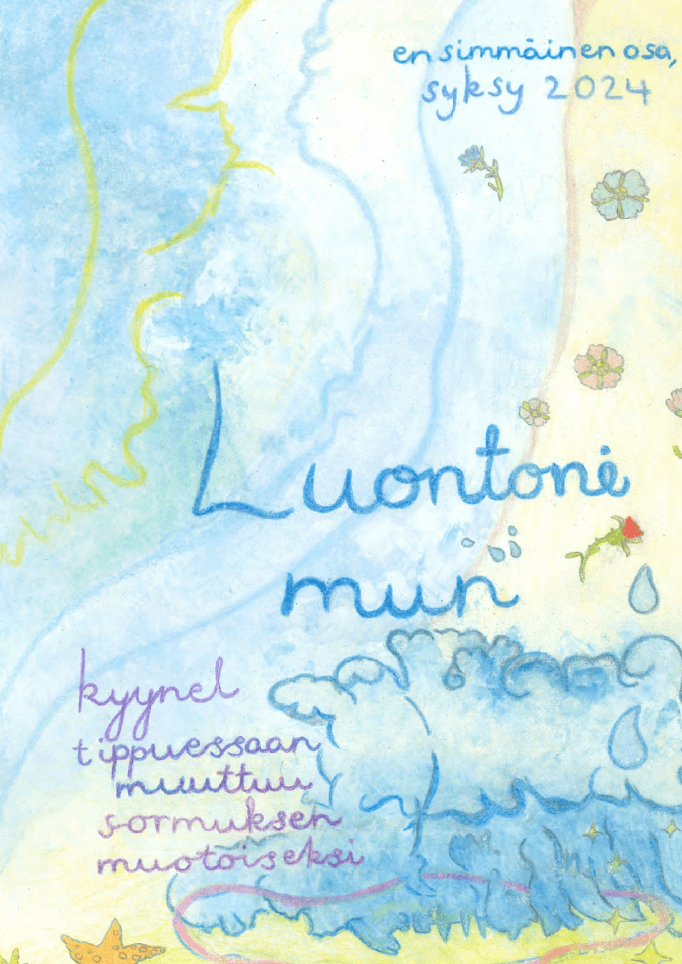 ensimmäinen osa,
syksy 2024
Luontoni
mun
kyynel
tippuessaan
muuttuu
sormuksen
muotoiseksi